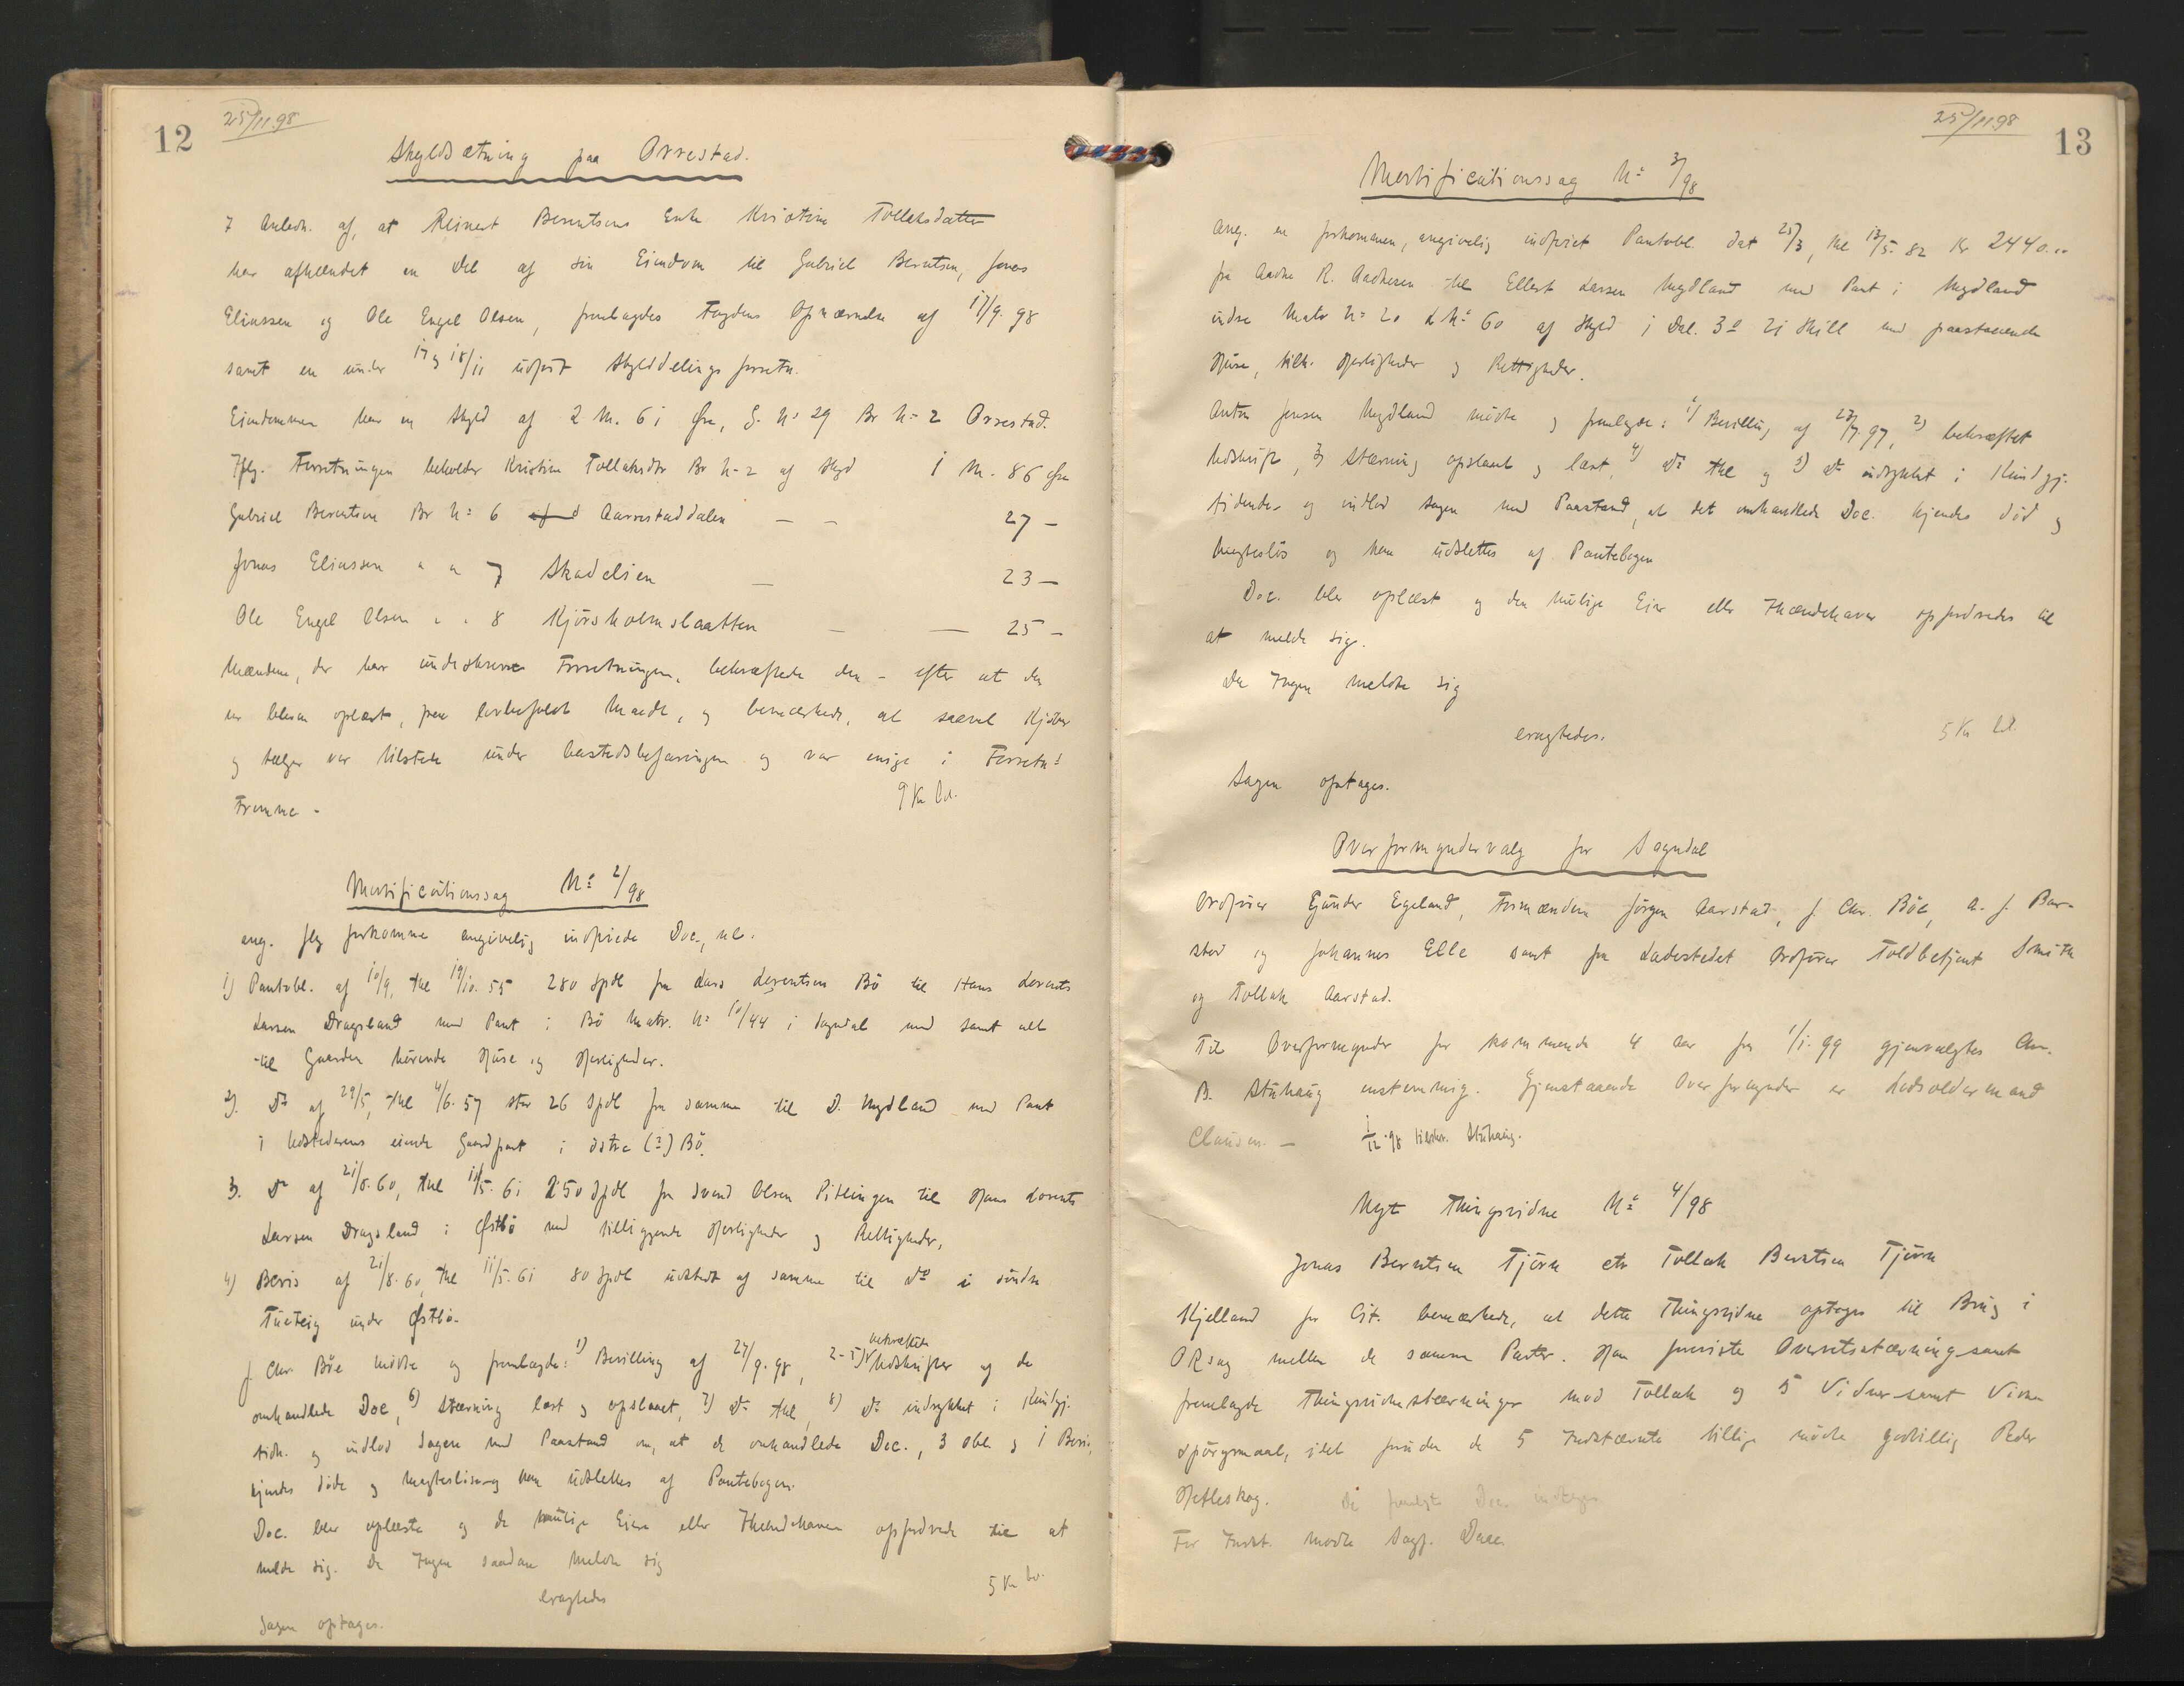 12
25/11 98
Skyldsætning paa Orrestad.
I Anledn. af, at Reinert Berentsens Enke Kristine Tollaksdatter
har afhændet en Del af sin Eiendom til Gabriel Berntsen, Jonas
Eliassen og Ole Engel Olsen, fremlagdes Fogdens Opnævnelse af 17/9. 98
samt en under 17 og 18/11 udført Skylddelings forretn.
Eiendommen har en Skyld af 2 M. 61 Øre, G. No 29 Br No 2 Orrestad.
Iflg. Forretningen beholder Kristine Tollaksdtr Br No 2 af Skyld 1 M. 86 Øre
Gabriel Berentsen Br No 6 Aarrestaddalen — — 27 —
Jonas Eliassen " " 7 Skadelien — 23 —
Ole Engel Olsen " " 8 Kjørsholmslaatten — — 25 —
Mændene, der har underskrevet Forretningen, bekræftede den - efter at den
er bleven oplæst, paa lovbefalet Maade, og bemærkede, at saavel Kjøber
og Sælger var tilstede under Aastedsbefaringen og var enige i Forretns
Fremme -
9 Kr bd.
Mortificationssag No 2/98
ang. flg forkomne angivelig indfriede Doc., nl.
1) Pantobl. af 10/9, thl 19/10. 55 280 Spdl fra Lars Lorentsen Bø til Hans Lorents
Larsen Dragsland med Pant i Bø Matr. No 10/44 i Sogndal med samt alt
til Gaarden hørende Huse og Herligheder.
2) Do af 29/5, thl 4/6. 57 stor 26 Spdl fra samme til D. Mydland med Pant
i Udstederens eiende Gaardpart i østre (?) Bø.
3. Do af 21/8. 60, thl 11/5. 61 250 Spdl fra Svend Olsen Pitlingen til Hans Lorents
Larsen Dragsland i Østbø med tilliggende Herligheder og Rettigheder,
4) Bevis af 21/8. 60, thl 11/5. 61 80 Spdl udstedt af samme til do i søndre
under Østbø.
J. Chr Bøe mødte og fremlagde: 1) Bevilling af 27/9. 98, 2-5) bekræftede Udskrifter af de
omhandlede Doc, 6) Stævning læst og opslaaet, 7) Do thl, 8) Do indrykket i Kundgj.
tid. og indlod Sagen med Paastand om, at de omhandlede Doc., 3 Obl. og 1 Bevis,
kjendes døde og magtesløse og kan udslettes af Pantebogen.
Doc. blev oplæste og de mulige Eiere eller Ihændehavere opfordrede til at
melde sig. Da Ingen saadan meldte sig
eragtedes
5 Kr bd.
Sagen optages.
25/11 98
13
Mortificationssag No 3/98
Ang. en forkommen, angivelig indfriet Pantobl. dat 25/3, thl 13/5. 82 Kr 2440..
fra Aadne R. Aadnesen til Ellert Larsen Mydland med Pant i Mydland
indre Matr No 20 L No 60 af Skyld 1 Dal. 3 o 21 Skill med paastaaende
Huse, tilh. Herligheder og Rettigheder.
Anton Jensen Mydland mødte og fremlagde: 1) Bevilling af 28/7. 97, 2) bekræftet
Udskrift, 3) Stævning opslaaet og læst, 4) Do thl og 5) Do indrykket i Kundgj.
tidende og indlod Sagen med Paastand, at det omhandlede Doc. kjendes død og
magtesløs og kan udslettes af Pantebogen
Doc. blev oplæst og den mulige Eier eller Ihændehaver opfordredes til
at melde sig.
Da Ingen meldte sig
eragtedes.
5 Kr bd.
Sagen optages.
Overformyndervalg for Sogndal
Ordfører Gunder Egeland, Formændene Jørgen Aarstad, J. Chr. Bøe, A. J. Bar-
stad og Johannes Elle samt fra Ladestedet Ordfører Toldbetjent Smith
og Tollak Aarstad.
Til Overformynder for kommende 4 aar fra 1/1. 99 gjenvalgtes Chr.
B. Stuhaug enstemmig. Gjenstaaende Overformynder er Lodsoldermand
Clausen. — 1/12 98 tilskr. Stuhaug.
Nyt Thingsvidne No 4/98
Jonas Berntsen Tjørn ctr Tollak Berntsen Tjørn
Kjelland for Cit. bemærkede, at dette Thingsvidne optages til Brug i
ORsag mellem de samme Parter. Han foreviste Overretsstævning samt
fremlagde Thingsvidnestævninger mod Tollak og 5 Vidner samt Vidne
spørgsmaal, idet foruden de 5 Indstævnte tillige mødte godvillig Peder
Hetleskog. De fremlagte Doc. indtages
For Indst. mødte Sagf. Daae.